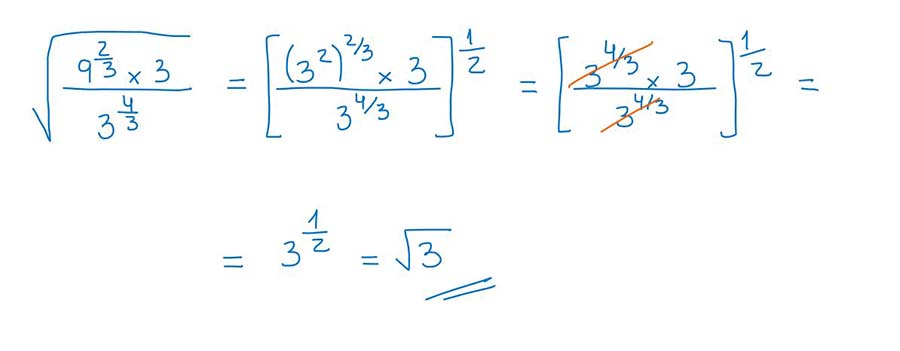 √(9^(2/3) × 3 / 3^(4/3)) = [(3^2)^(2/3) × 3 / 3^(4/3)]^(1/2) = [3^(4/3) × 3 / 3^(4/3)]^(1/2) =
= 3^(1/2) = √3